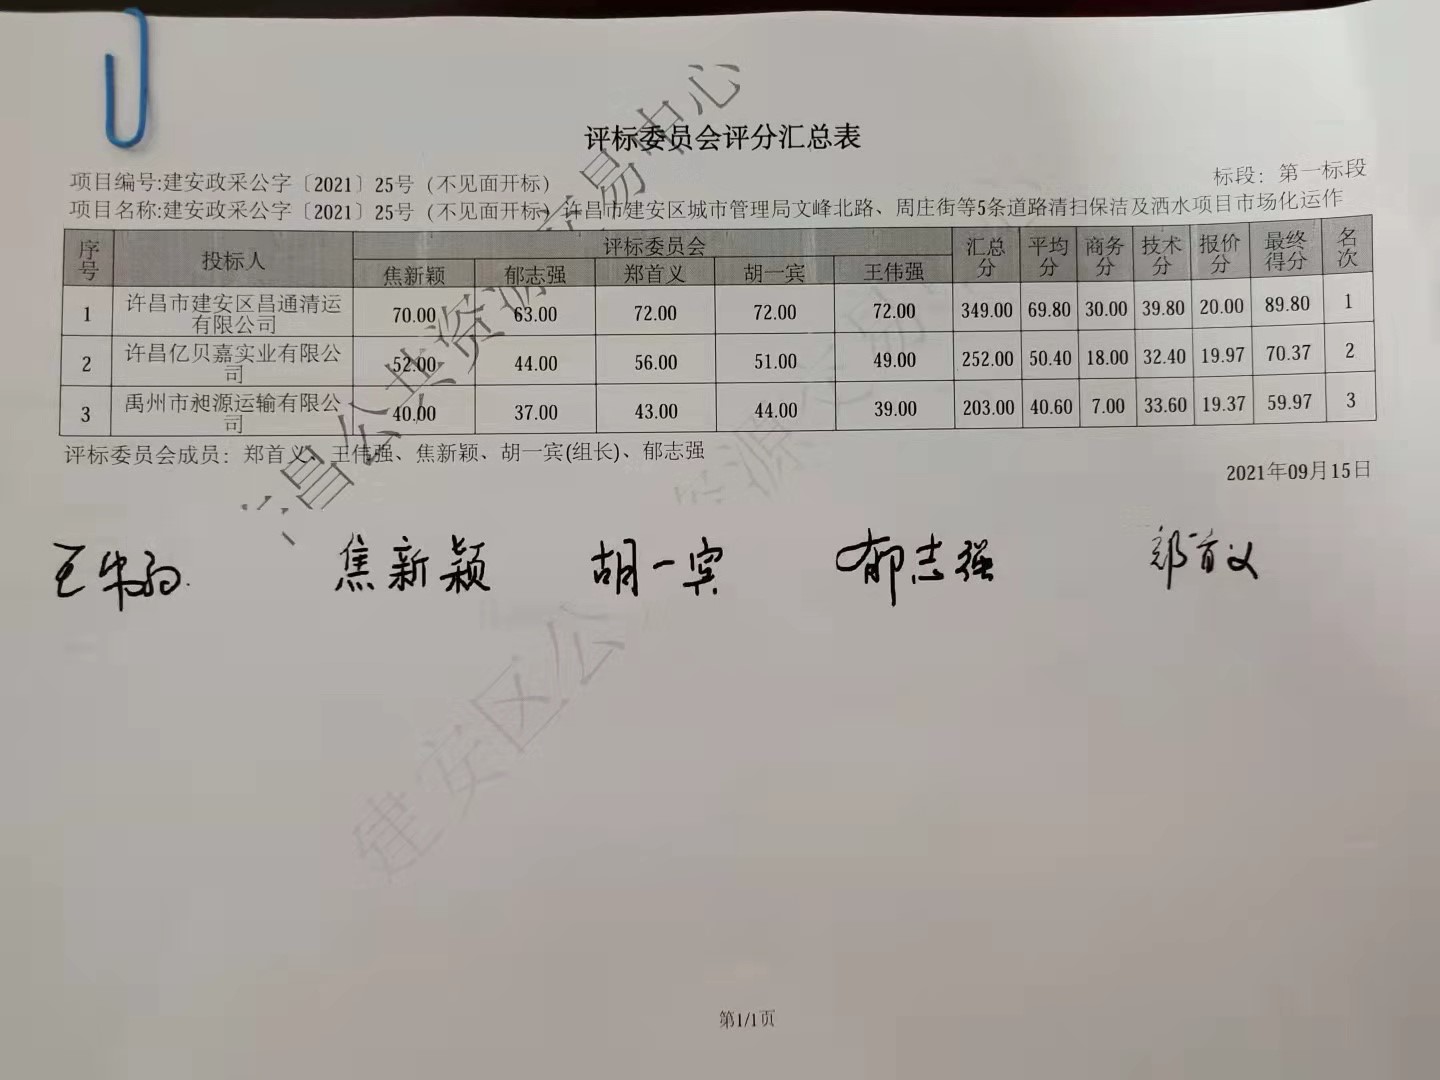 评标委员会评分汇总表
项目编号:建安政采公字〔2021〕25号（不见面开标） 标段：第一标段
项目名称:建安政采公字〔2021〕25号（不见面开标）许昌市建安区城市管理局文峰北路、周庄街等5条道路清扫保洁及洒水项目市场化运作
序号 投标人 评标委员会 汇总分 平均分 商务分 技术分 报价分 最终得分 名次
焦新颖 郁志强 郑首义 胡一宾 王伟强
1 许昌市建安区昌通清运有限公司 70.00 63.00 72.00 72.00 72.00 349.00 69.80 30.00 39.80 20.00 89.80 1
2 许昌亿贝嘉实业有限公司 52.00 44.00 56.00 51.00 49.00 252.00 50.40 18.00 32.40 19.97 70.37 2
3 禹州市昶源运输有限公司 40.00 37.00 43.00 44.00 39.00 203.00 40.60 7.00 33.60 19.37 59.97 3
评标委员会成员：郑首义、王伟强、焦新颖、胡一宾(组长)、郁志强
2021年09月15日
王伟强 焦新颖 胡一宾 郁志强 郑首义
建安区公
第1/1页